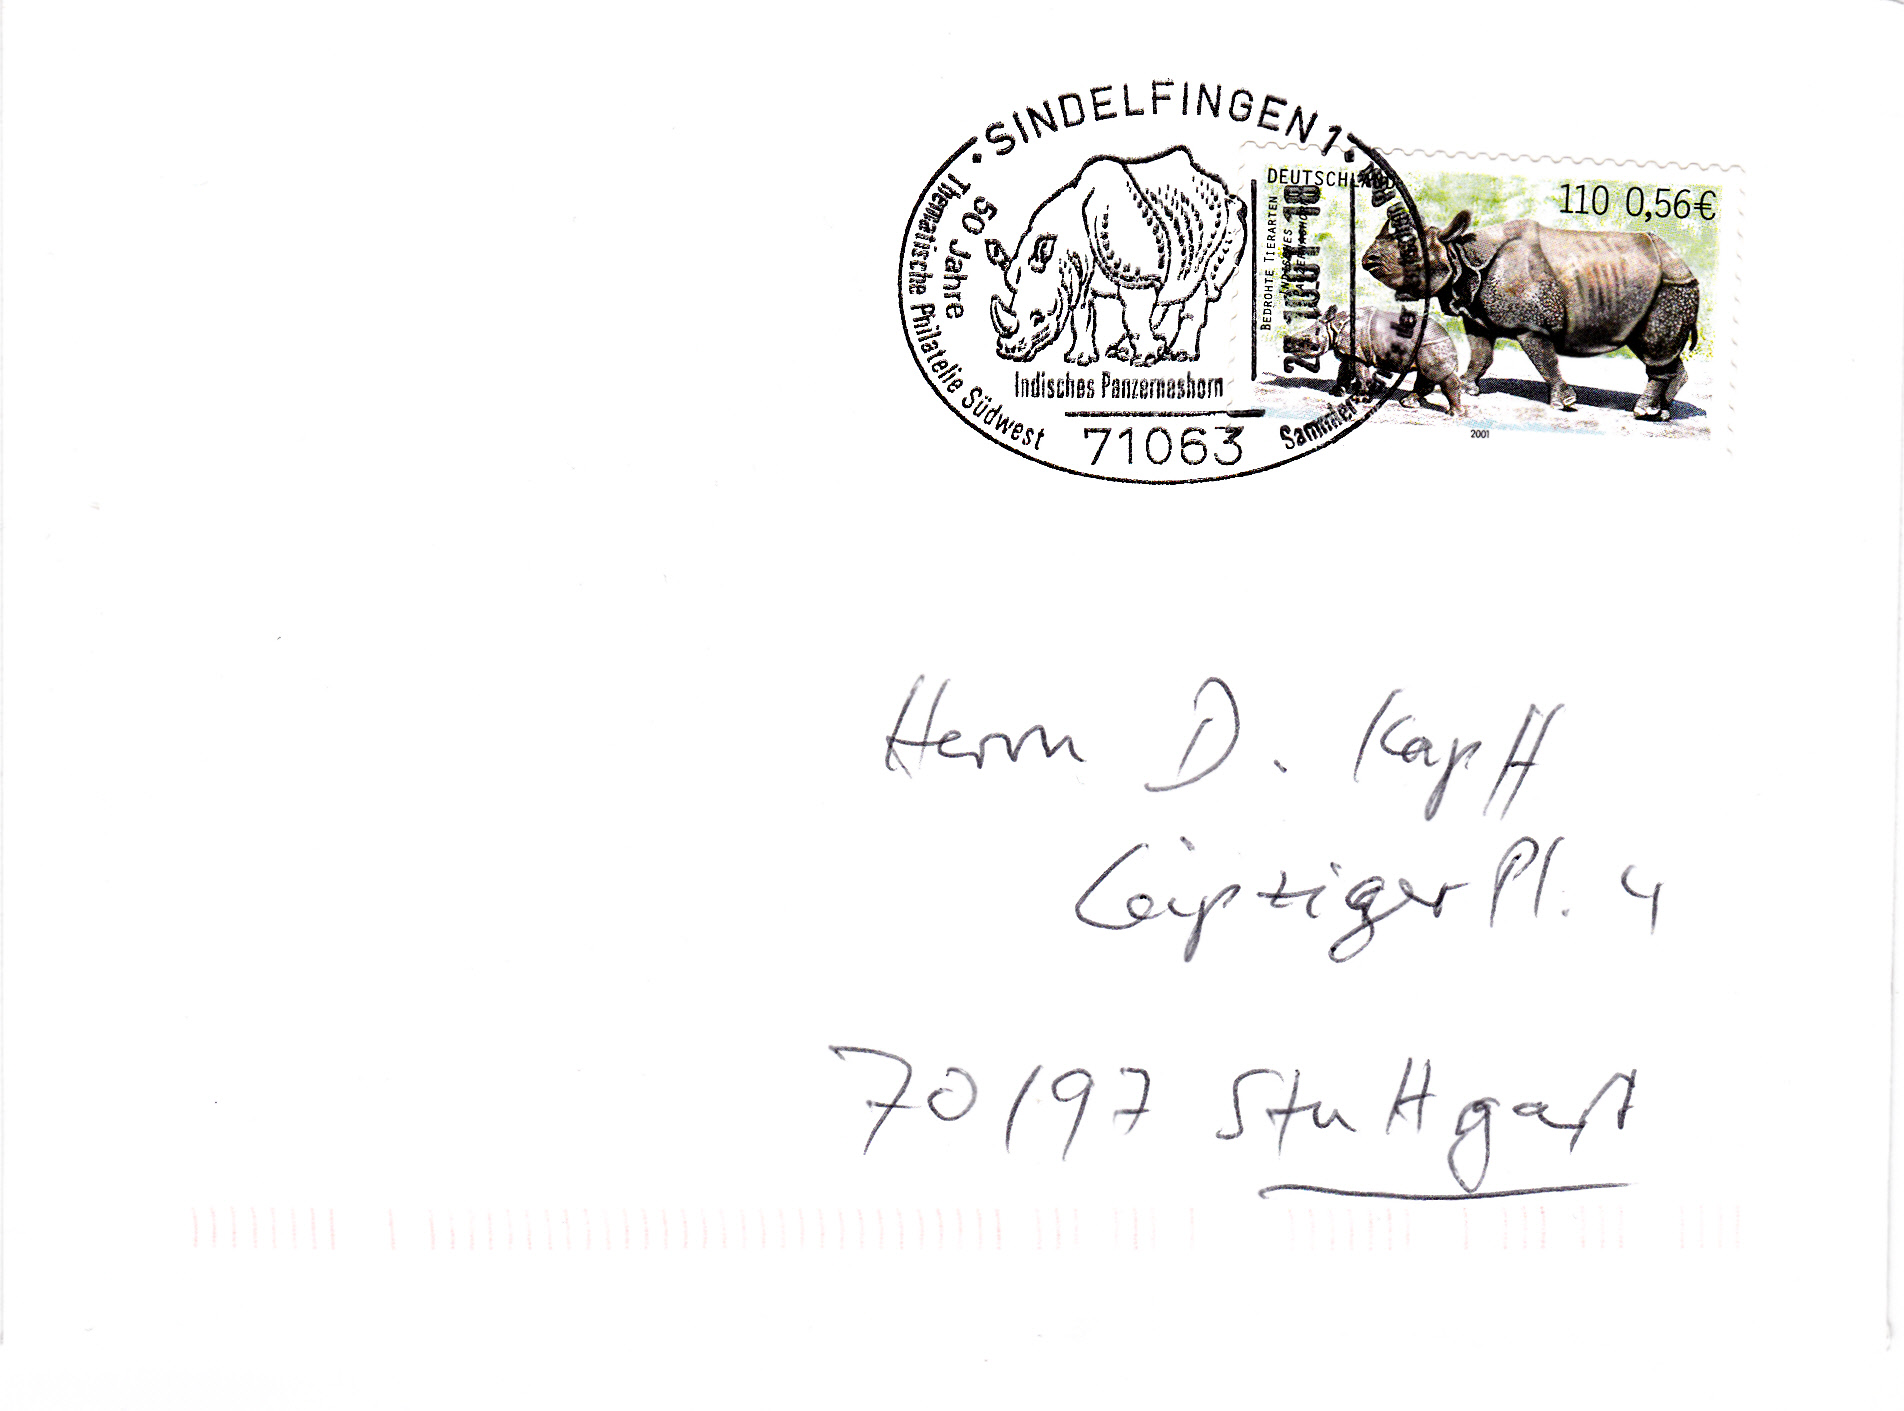 SINDELFINGEN 1
50 Jahre
Thematische Philatelie Südwest
Indisches Panzernashorn
71063
Sammler
der Deutschen Post
DEUTSCHLAND
BEDROHTE TIERARTEN
INDISCHES
PANZERNASHORN
110 0,56€
2001
Herrn D. Kapff
Leipziger Pl. 4
70197 Stuttgart